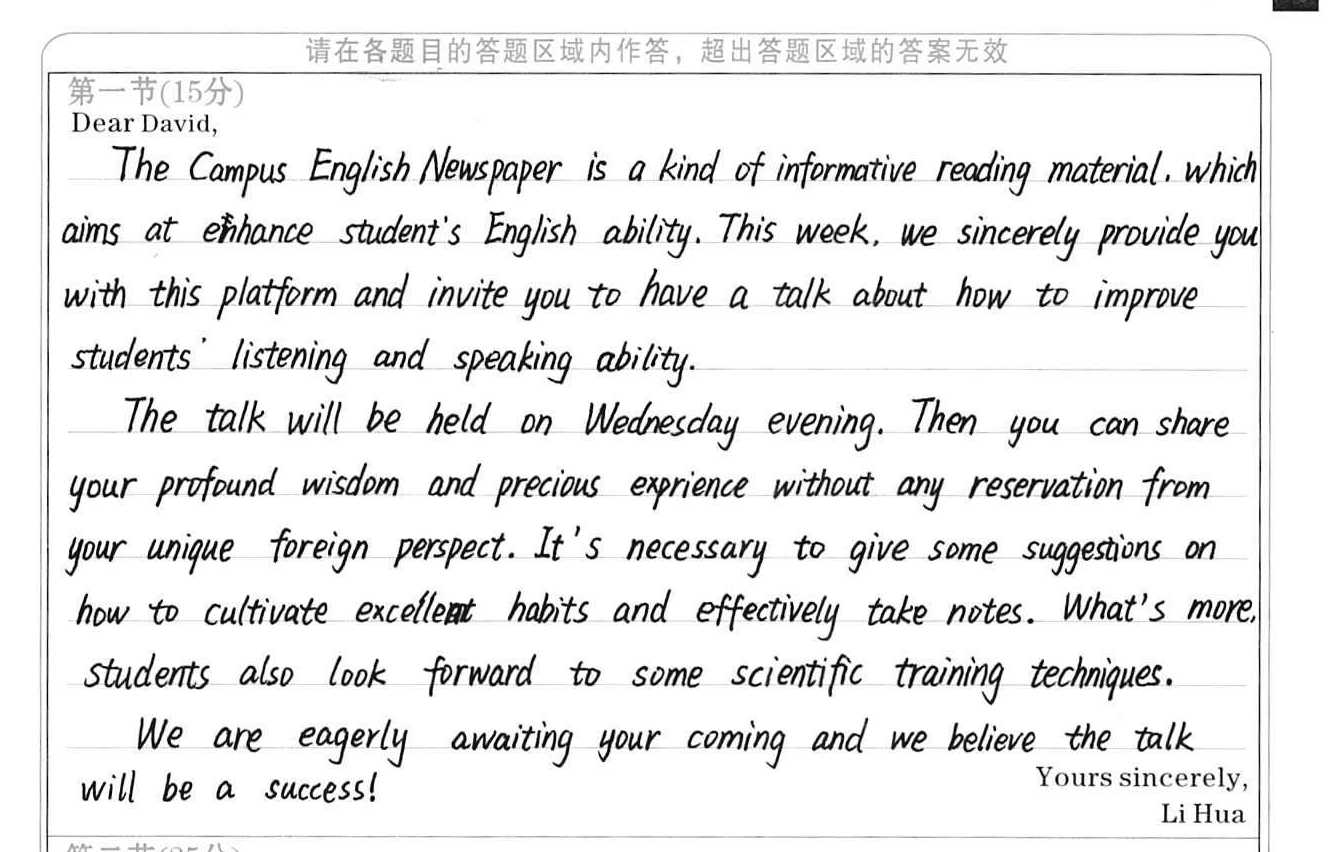 请在各题目的答题区域内作答，超出答题区域的答案无效
第一节(15分)
Dear David,
The Campus English Newspaper is a kind of informative reading material, which
aims at enhance student's English ability. This week, we sincerely provide you
with this platform and invite you to have a talk about how to improve
students' listening and speaking ability.
The talk will be held on Wednesday evening. Then you can share
your profound wisdom and precious exprience without any reservation from
your unique foreign perspect. It's necessary to give some suggestions on
how to cultivate excellent habits and effectively take notes. What's more,
students also look forward to some scientific training techniques.
We are eagerly awaiting your coming and we believe the talk
will be a success!
Yours sincerely,
Li Hua